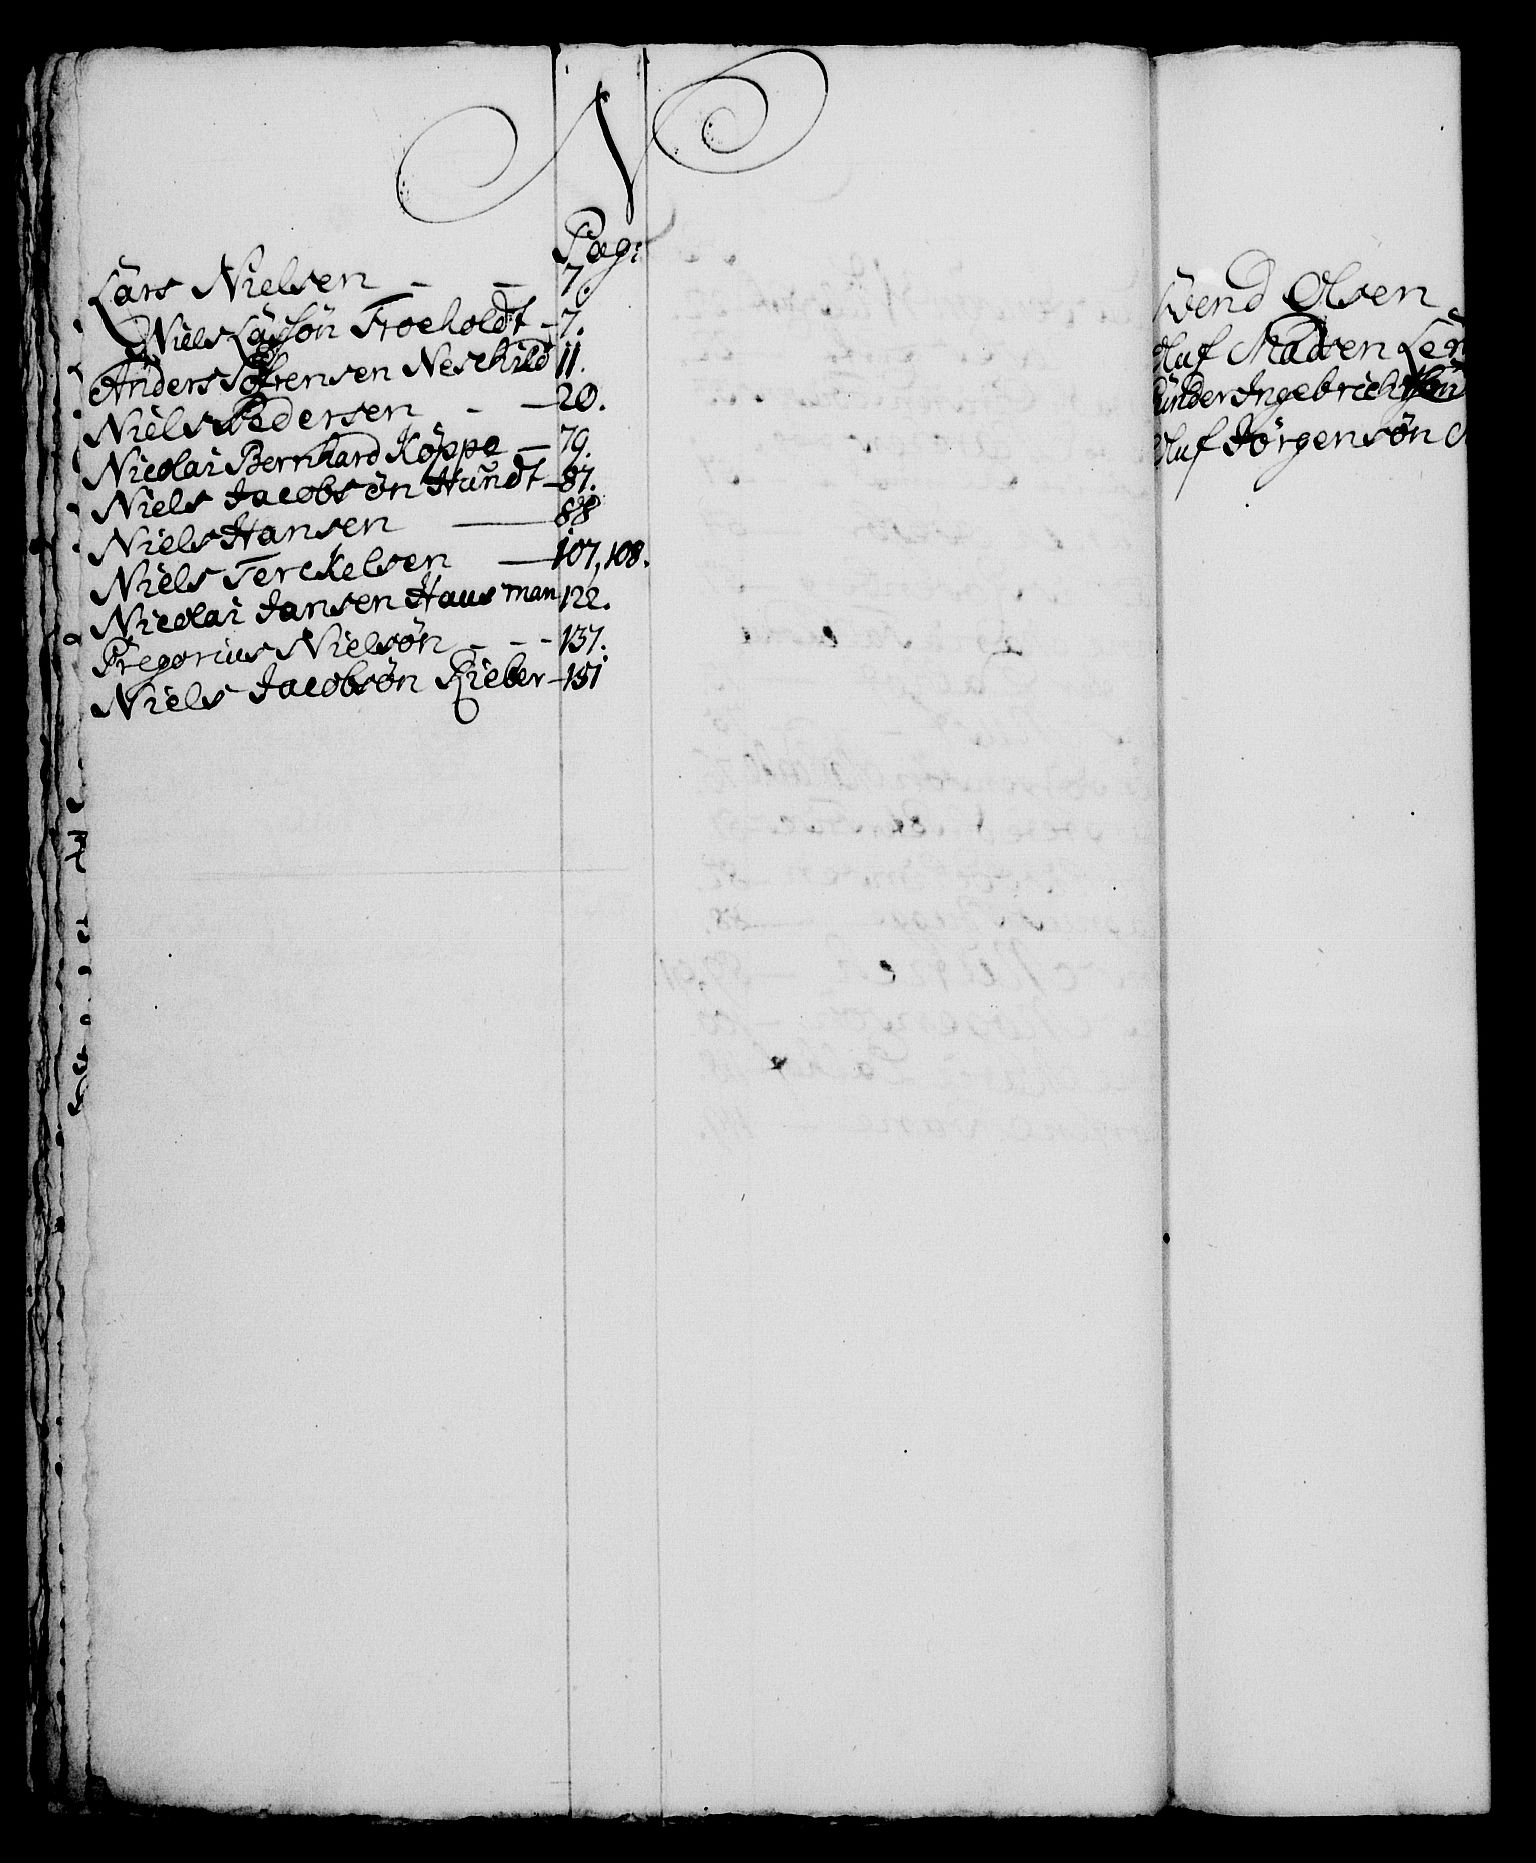 N
Pag:
Lars Nielsen - - 7.
Niels Larssøn Troeholdt - 7.
Anders Sørensen Neskild 11.
Niels Pedersen - - 20.
Nicolai Bernhard Köppe - 79.
Niels Jacobsøn Hundt - 87.
Niels Hansen - 88
Niels Terckelsen - 107, 108.
Nicolai Jansen Hausman 122.
Pregorius Nielsøn - - - 137.
Niels Jacobsøn Kieber - 151
Svend Olsen
Oluf Madsen
Gunder Ingebrichtsøn
Oluf Jørgensøn